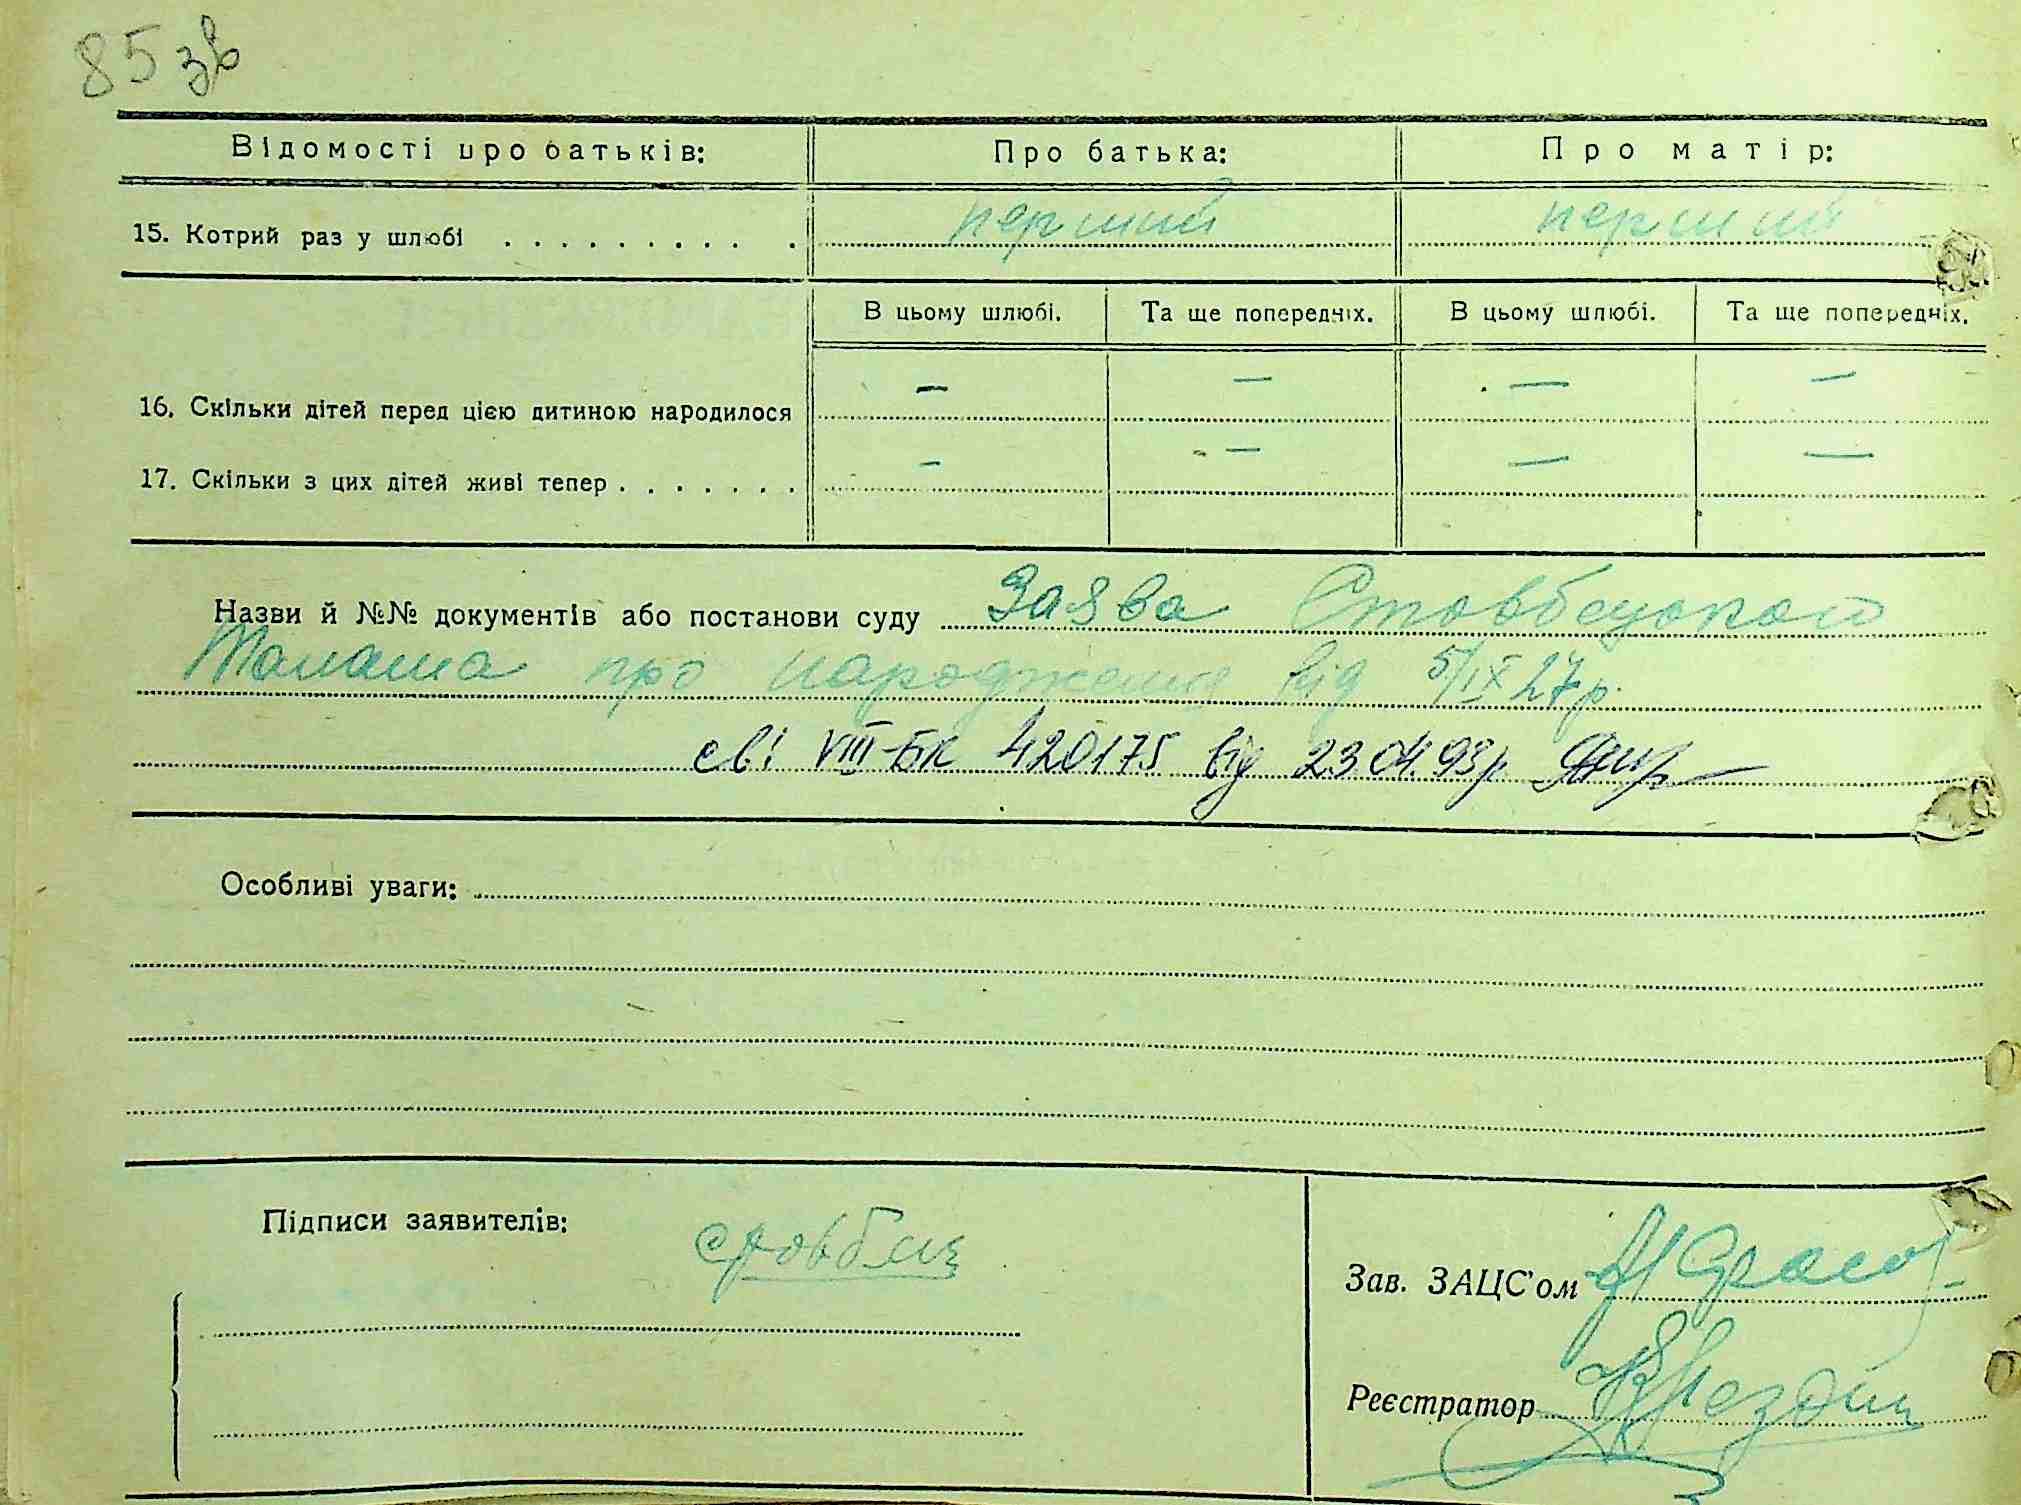 85 зв
Відомості про батьків: Про батька: Про матір:
15. Котрий раз у шлюбі . . . . . . . . . . перший перший
В цьому шлюбі. Та ще попередніх. В цьому шлюбі. Та ще попередніх.
16. Скільки дітей перед цією дитиною народилося — — — —
17. Скільки з цих дітей живі тепер . . . . . . . — — — —
Назви й №№ документів або постанови суду Заява Стовбецького
про народження від 5/IX 27 р.
сві VIII-БК 420175 від 23 04. 93 р.
Особливі уваги:
Підписи заявителів:
Зав. ЗАЦС'ом
Реєстратор